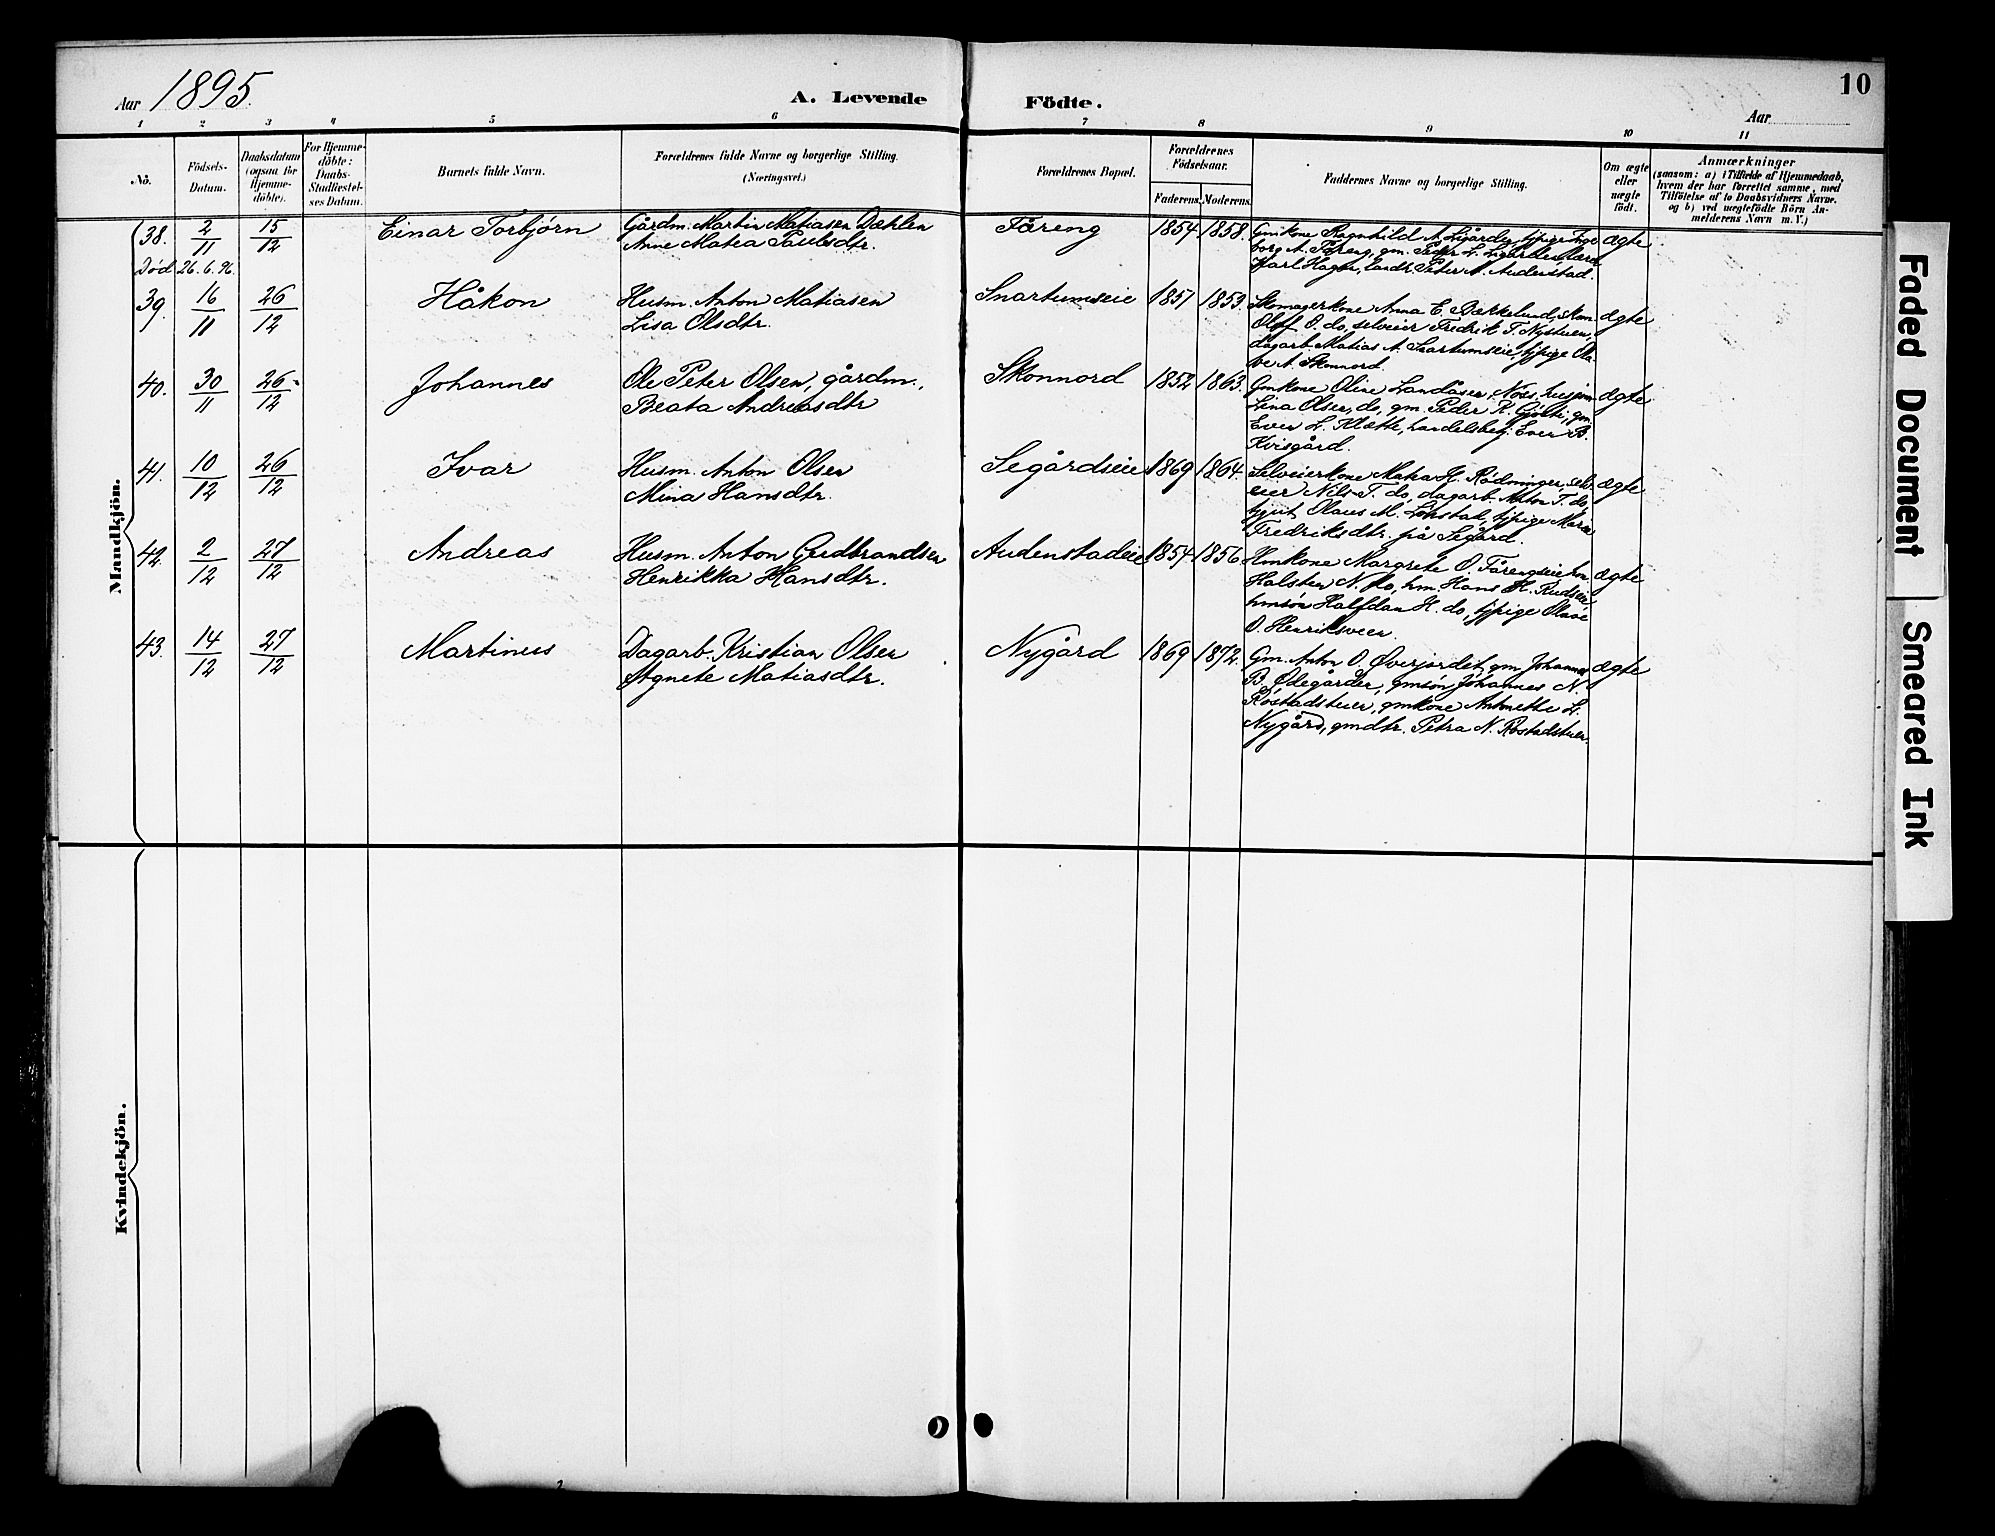 10
Aar 1895.
A. Levende Födte.
Aar
1 2 3 4 5 6 7 8 9 10 11
Nö.
Födsels-Datum.
Daabsdatum (ogsaa for Hjemme-döbte).
For Hjemme-döbte: Daabs-Stadfæstel-ses Datum.
Barnets fulde Navn.
Forældrenes fulde Navne og borgerlige Stilling.
(Næringsvei.)
Forældrenes Bopæl.
Forældrenes Födselsaar.
Faderens. Moderens.
Faddernes Navne og borgerlige Stilling.
Om ægte eller uægte födt.
Anmærkninger
(saasom: a) i Tilfælde af Hjemmedaab,
hvem der har forrettet samme, med
Tilföielse af to Daabsvidners Navne.
og b) ved uægtefödte Börn An-
melderens Navn m. V.)
Mandkjön.
38. 2/11 15/12 Einar Torbjørn
Død 26.6.96.
Gårdm. Martin Matiasen Dæhlen
Anne Matea Paulsdtr.
Fåreng 1854 1858.
Gmkone Ragnhild A. Ligården, tjpige Inge
borg A. Fåreng, gm. Peder L. Ligården,
Karl Hagen, landh. Peter A. Audenstad.
ægte
39. 16/11 26/12 Håkon
Husm. Anton Matiasen
Lisa Olsdtr.
Snartumseie 1857 1853.
Skomagerkone Anna E. Bækkelund, skom.
Oluf O. do, selveier Fredrik T. Nystuen,
dagarb. Matias A. Snartumseie, tjpige Ola-
ve A. Skonnord.
ægte
40. 30/11 26/12 Johannes
Ole Peter Olsen, gårdm.,
Beata Andreasdtr
Skonnord 1852 1863.
Gmkone Oline Landåsen,
Lina Olsen, do, gm. Peder R. Gjøsti, gm.
Even L. Klætte, handelsbetj. Even B.
Kvisgård.
ægte
41. 10/12 26/12 Ivar
Husm. Anton Olsen
Mina Hansdtr.
Segårdseie 1869 1864.
Selveierkone Matea H. Rødninger, selv
eier Nils T. do, dagarb. Anton T. do,
tjgut Olaus M. Lønstad, tjpige Maren
Fredriksdtr. på Segård.
ægte
42. 2/12 27/12 Andreas
Husm. Anton Gudbrandsen
Henrikka Hansdtr.
Audenstadeie 1854 1856.
Hmkone Margrete O. Fårengseie, hm.
Halsten N. do, hm. Hans H. Rudseie,
hmsøn Halfdan H. do, tjpige Olave
O. Henriksveen.
ægte
43. 14/12 27/12 Martinus
Dagarb. Kristian Olsen
Agnete Matiasdtr.
Nygård 1869 1872.
Gm. Anton O. Øverjordet, gm. Johannes
B. Ødegården, gmsøn Johannes N.
Røstadstuen, gmkone Antonette L.
Nygård, gmdtr. Petra N. Røstadstuen.
ægte
Kvindekjön.
Faded Document
Smeared Ink